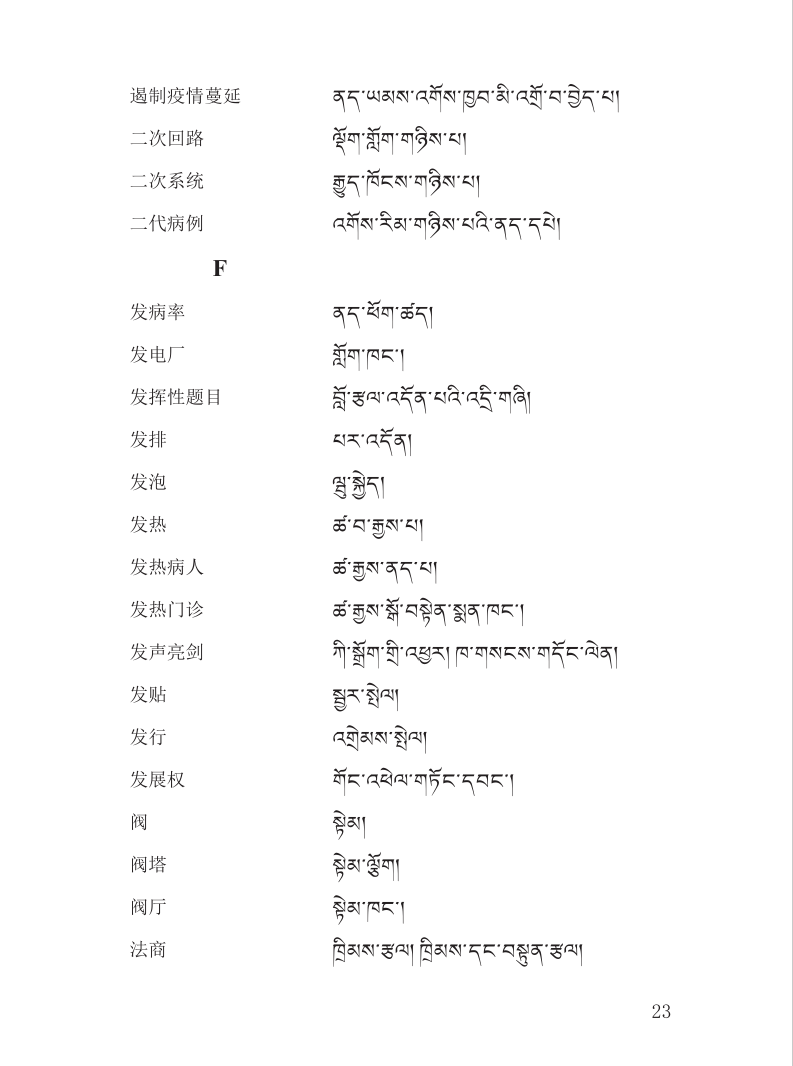 遏制疫情蔓延 ནད་ཡམས་འགོས་ཁྱབ་མི་འགྲོ་བ་བྱེད་པ།
二次回路 ལྡོག་གློག་གཉིས་པ།
二次系统 རྒྱུད་ཁོངས་གཉིས་པ།
二代病例 འགོས་རིམ་གཉིས་པའི་ནད་དཔེ།
F
发病率 ནད་ཕོག་ཚད།
发电厂 གློག་ཁང་།
发挥性题目 བློ་རྩལ་འདོན་པའི་འདྲི་གཞི།
发排 པར་འདོན།
发泡 ལྦུ་སྐྱེད།
发热 ཚ་བ་རྒྱས་པ།
发热病人 ཚ་རྒྱས་ནད་པ།
发热门诊 ཚ་རྒྱས་སྒོ་བསྟེན་སྨན་ཁང་།
发声亮剑 ཀི་སྒྲོག་གྲི་འཕྱར། ཁ་གསངས་གདོང་ལེན།
发贴 སྦྱར་སྤེལ།
发行 འགྲེམས་སྤེལ།
发展权 གོང་འཕེལ་གཏོང་དབང་།
阀 སྟེམ།
阀塔 སྟེམ་ལྕོག།
阀厅 སྟེམ་ཁང་།
法商 ཁྲིམས་རྩལ། ཁྲིམས་དང་བསྟུན་རྩལ།
23